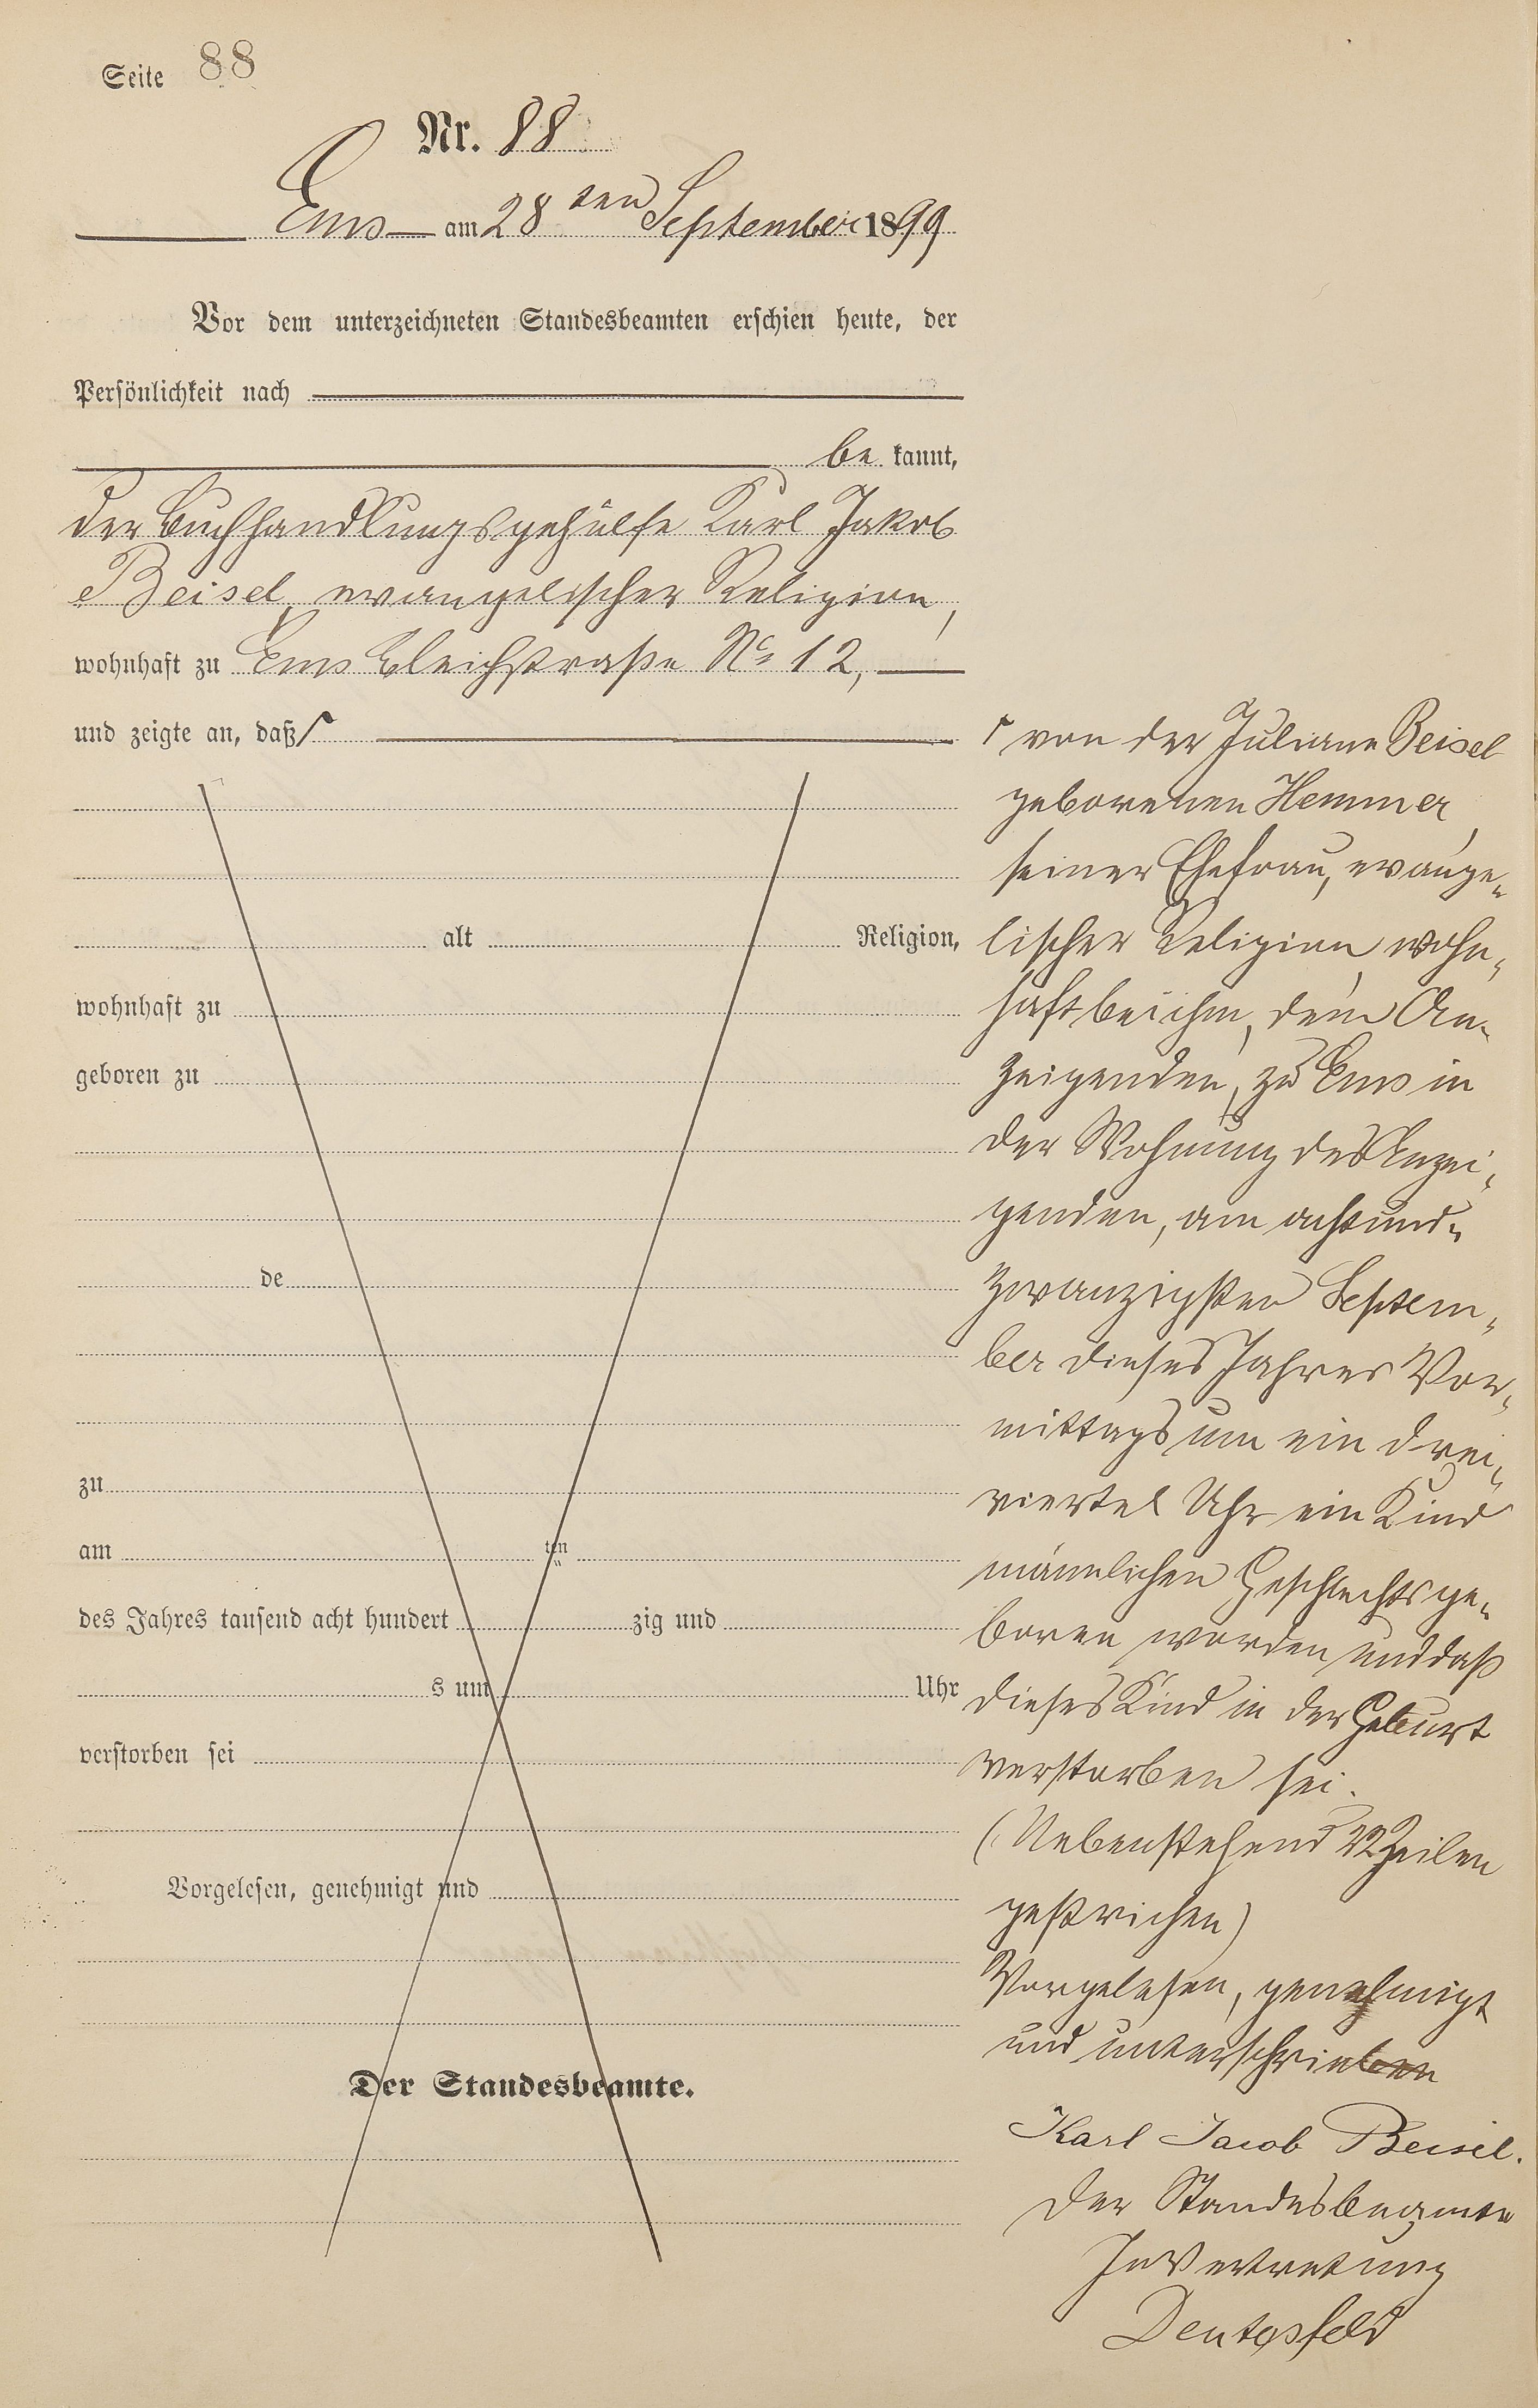 Seite 88
Nr. 88
Ems am 28ten September 1899
Vor dem unterzeichneten Standesbeamten erschien heute, der
Persönlichkeit nach
be kannt,
der Buchhandlungsgehülfe Karl Jakob
Beisel, evangelischer Religion,
wohnhaft zu Ems Bleichstraße No 12,
und zeigte an, daß
alt Religion,
wohnhaft zu
geboren zu
de
zu
am ten
des Jahres tausend acht hundert zig und
s um Uhr
verstorben sei
Vorgelesen, genehmigt und
Der Standesbeamte.
von der Juliane Beisel
geborenen Hemmer,
seiner Ehefrau, evange-
lischer Religion, wohn-
haft bei ihm, dem An-
zeigenden, zu Ems in
der Wohnung des Anzei-
genden, am achtund-
zwanzigsten Septem-
ber dieses Jahres Vor-
mittags um ein drei-
viertel Uhr ein Kind
männlichen Geschlechts ge-
boren worden und daß
dieses Kind in der Geburt
verstorben sei.
(Nebenstehend 22 Zeilen
gestrichen)
Vorgelesen, genehmigt
und unterschrieben
Karl Jacob Beisel.
Der Standesbeamte
In Vertretung